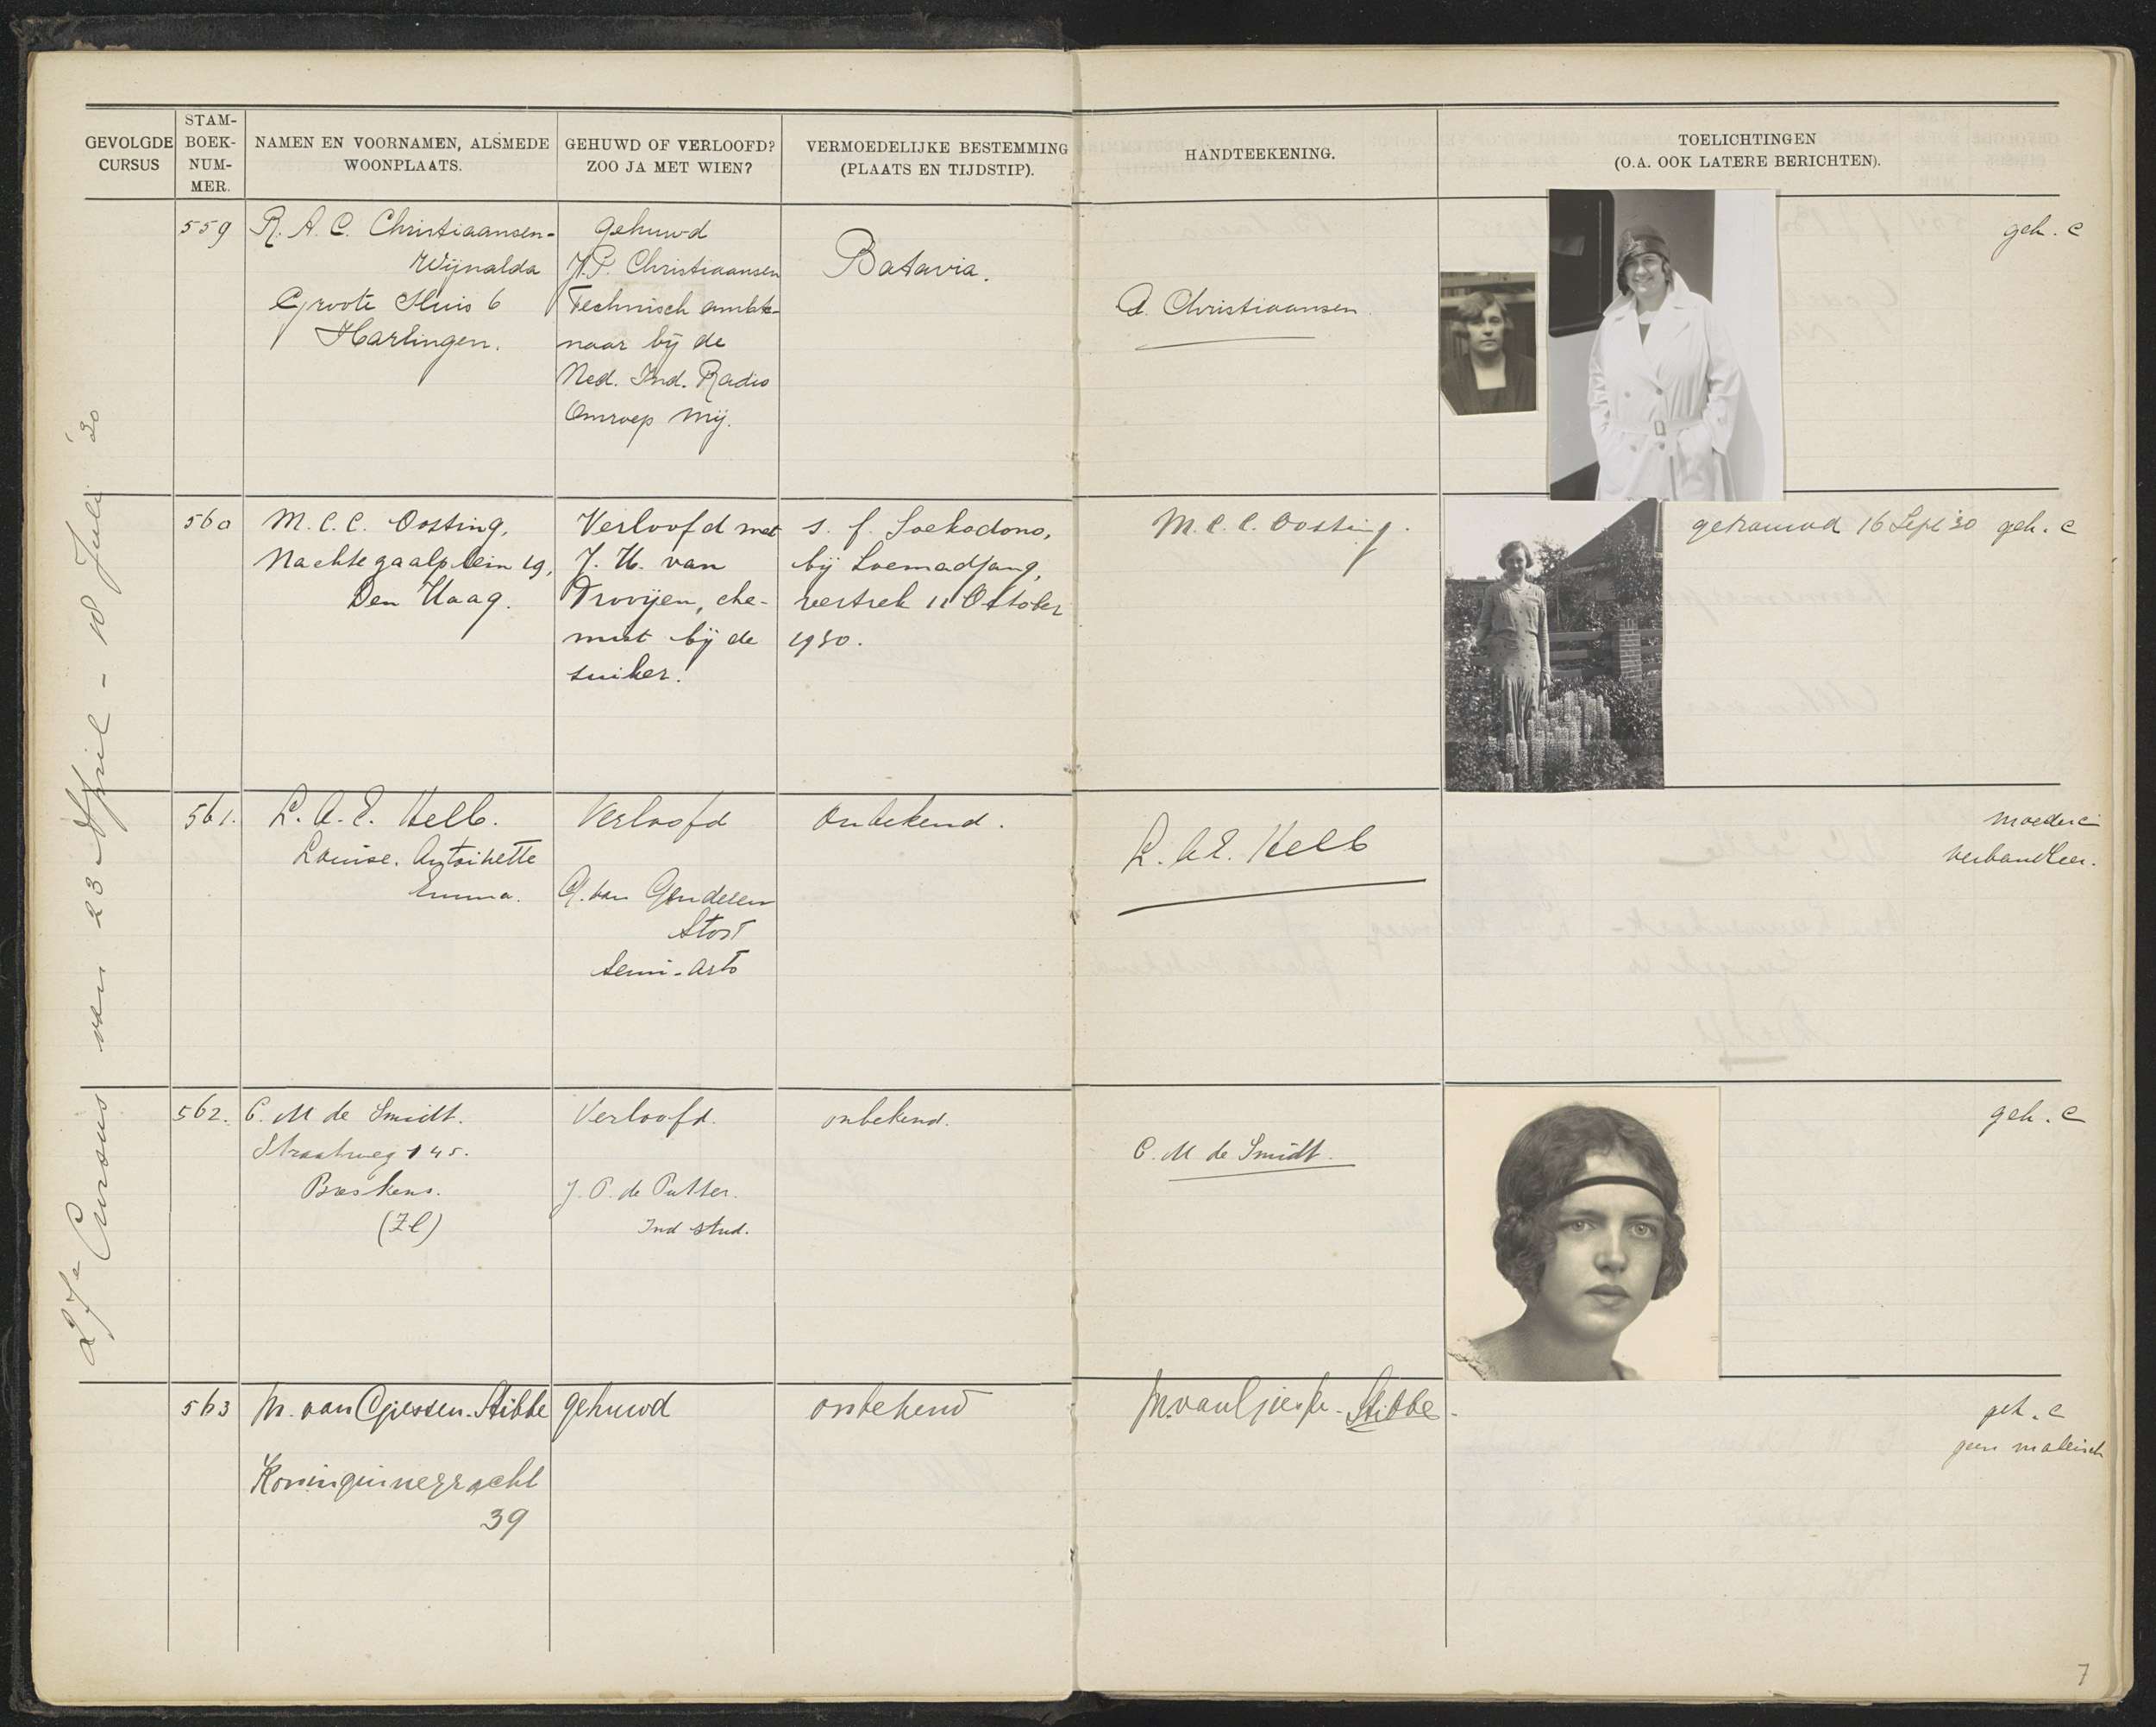 GEVOLGDE CURSUS
STAM-BOEK-NUM-MER.
NAMEN EN VOORNAMEN, ALSMEDE WOONPLAATS.
GEHUWD OF VERLOOFD? ZOO JA MET WIEN?
VERMOEDELIJKE BESTEMMING (PLAATS EN TIJDSTIP).
HANDTEEKENING.
TOELICHTINGEN (O.A. OOK LATERE BERICHTEN).
27e Cursus van 23 April - 18 Juli '30
559
R. A. C. Christiaansen-
Wijnalda
Groote Sluis 6
Harlingen.
gehuwd
J.P. Christiaansen
Technisch ambte-
naar bij de
Ned. Ind. Radio
Omroep Mij.
Batavia.
A. Christiaansen.
geh. c
560
M. C. C. Oosting,
Nachtegaalplein 19,
Den Haag.
Verloofd met
J. H. van
Trooijen, che-
mist bij de
suiker!
s. f. Soekodono,
bij Loemadjang,
vertrek 11 October
1930.
M. C. C. Oosting.
getrouwd 16 Sept '30 geh. c
561.
L. A. E. Helb.
Louise. Antoinette
Emma.
Verloofd
G. van Genderen
Stort
Semi-arts
Onbekend.
L. A. E. Helb
moeder c
verbandleer.
562.
C. M de Smidt.
Straatweg 145.
Breskens.
(Zl)
Verloofd.
J. P. de Putter.
Ind stud.
onbekend.
C. M de Smidt.
geh. c
563
M. van Giessen-Stibbe
Koninginnegracht
39
gehuwd
onbekend
M. van Giessen-Stibbe-
geh. c
geen maleisch
7